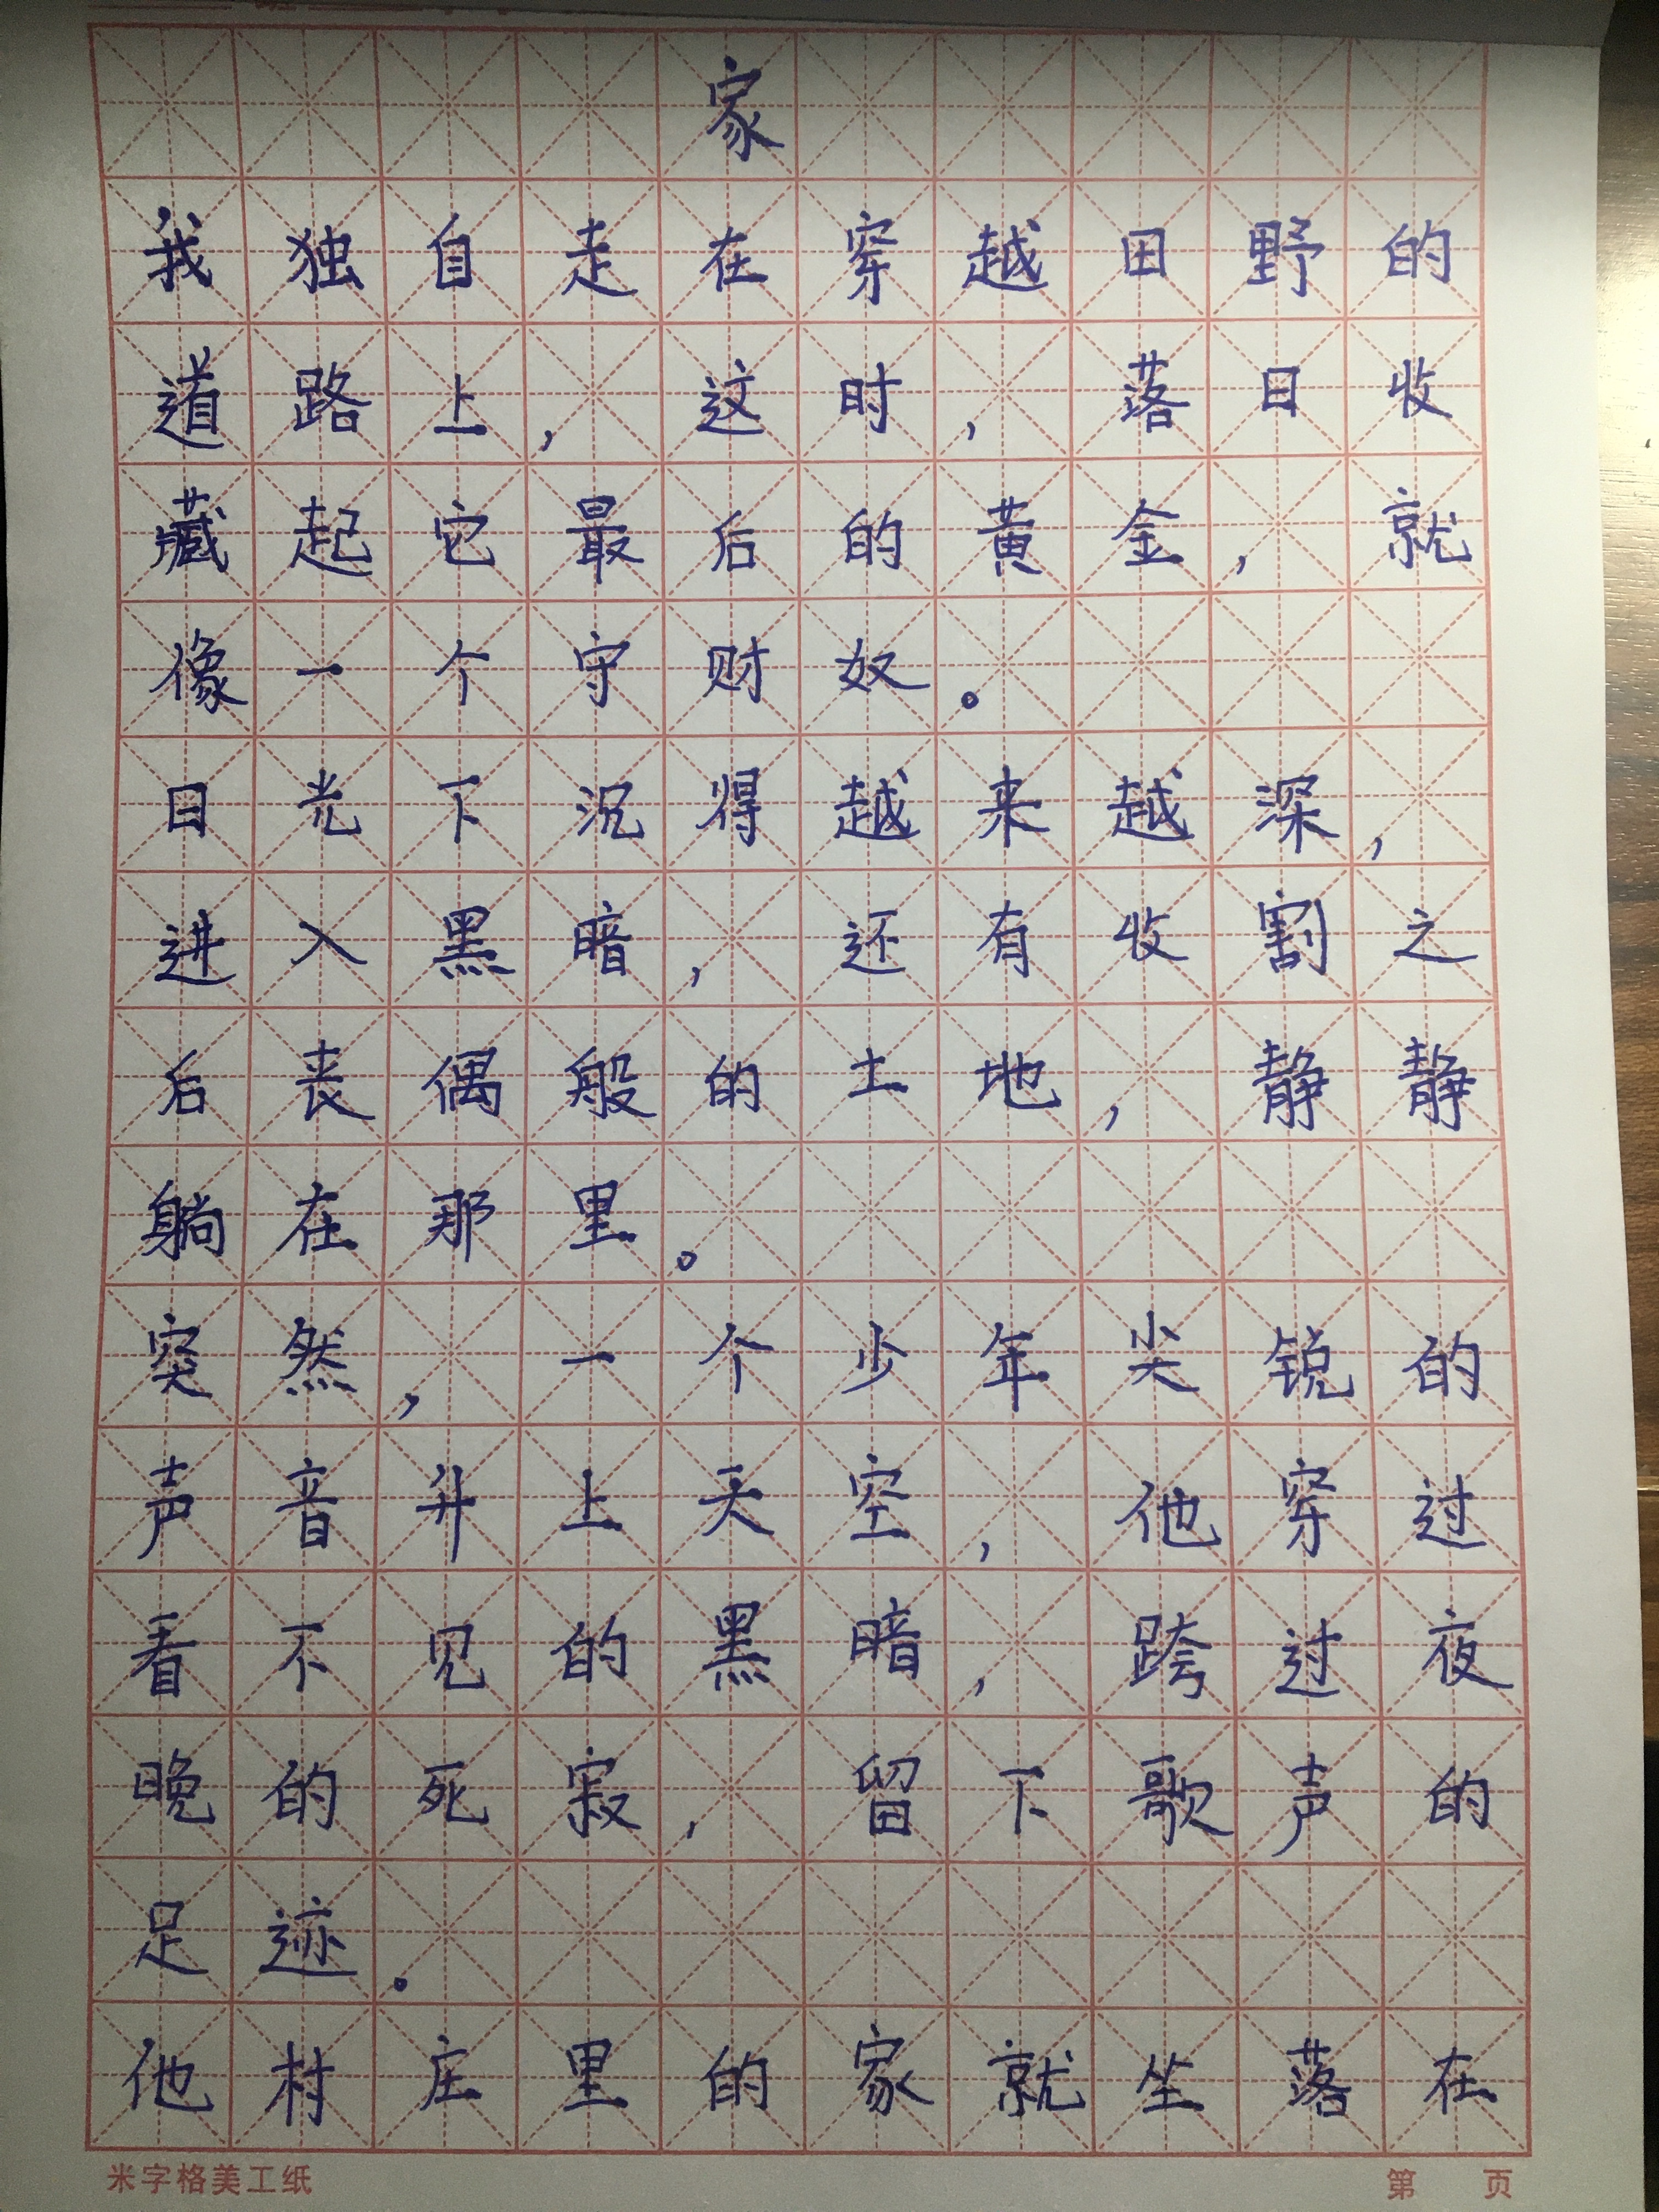 家
我独自走在穿越田野的
道路上，这时，落日收
藏起它最后的黄金，就
像一个守财奴。
日光下沉得越来越深，
进入黑暗，还有收割之
后丧偶般的土地，静静
躺在那里。
突然，一个少年尖锐的
声音升上天空，他穿过
看不见的黑暗，跨过夜
晚的死寂，留下歌声的
足迹。
他村庄里的家就坐落在
米字格美工纸
第 页